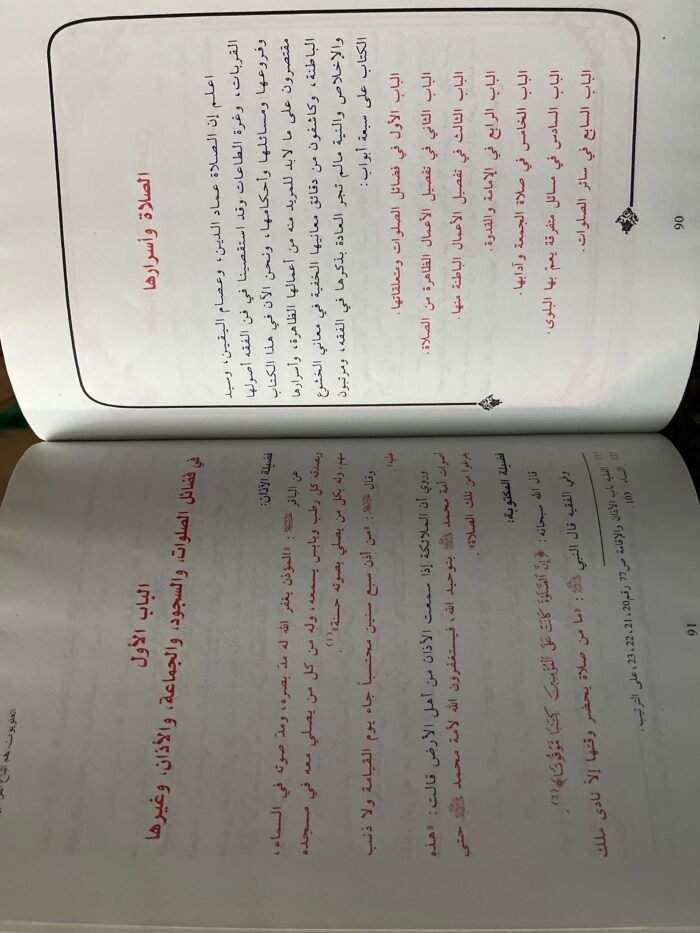 الصلاة وأسرارها
اعلم إن الصلاة عماد الدين، وعصام اليقين، وسيد
القربات، وغرة الطاعات وقد استقصينا في فن الفقه أصولها
وفروعها ومسائلها وأحكامها، ونحن الآن في هذا الكتاب
مقتصرون على ما لابد للمريد منه من أعمالها الظاهرة، وأسرارها
الباطنة، وكاشفون من دقائق معانيها الخفية في معاني الخشوع
والإخلاص والنية مالم تجر العادة بذكرها في الفقه، ومرتبون
الكتاب على سبعة أبواب:
الباب الأول في فضائل الصلوات ومتعلقاتها.
الباب الثاني في تفصيل الأعمال الظاهرة من الصلاة.
الباب الثالث في تفصيل الأعمال الباطنة منها.
الباب الرابع في الإمامة والقدوة.
الباب الخامس في صلاة الجمعة وآدابها.
الباب السادس في مسائل متفرقة يعم بها البلوى.
الباب السابع في سائر الصلوات.
90
الباب الأول
في فضائل الصلوات، والسجود، والجماعة، والأذان، وغيرها
فضيلة الأذان:
عن الباقر: «المؤذن يغفر الله له مد بصره، ومد صوته في السماء،
ويصدقه كل رطب ويابس يسمعه، وله من كل من يصلي معه في مسجده
سهم، وله بكل من يصلي بصوته حسنة»(1)
وقال ﷺ: «من أذن سبع سنين محتسباً جاء يوم القيامة ولا ذنب
عليه».
وروي أن الملائكة إذا سمعت الأذان من أهل الأرض قالت: «هذه
أصوات أمة محمد ﷺ بتوحيد الله، فيستغفرون الله لأمة محمد ﷺ حتى
يفرغوا من تلك الصلاة».
فضيلة المكتوبة:
قال الله سبحانه: ﴿إِنَّ ٱلصَّلَوٰةَ كَانَتْ عَلَى ٱلْمُؤْمِنِينَ كِتَٰبًا مَّوْقُوتًا﴾(2).
وفي الفقيه قال النبي ﷺ: «ما من صلاة يحضر وقتها إلا نادى ملك
(1) الفقيه باب الأذان والإقامة ص77 رقم 20، 21، 22، 23، على الترتيب.
(2) النساء: 103.
91